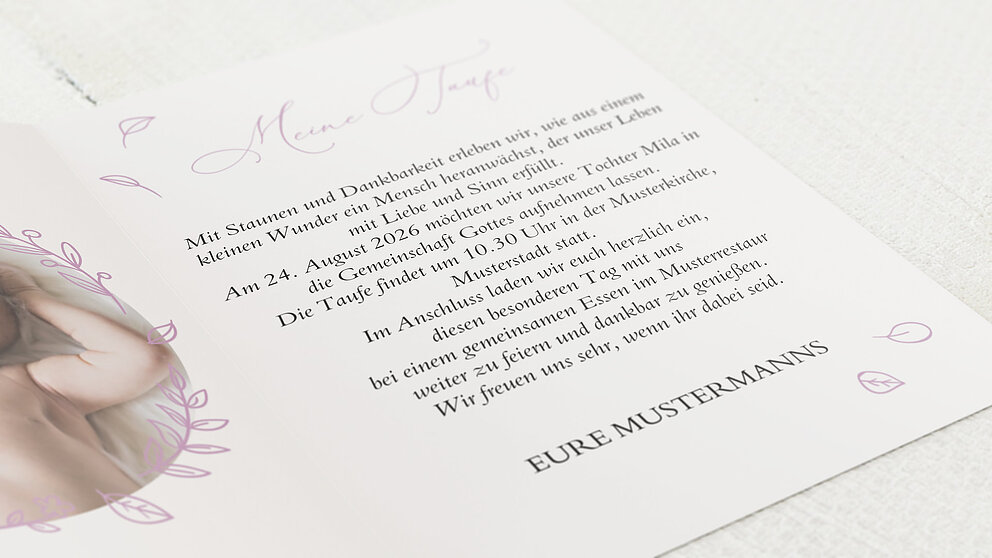 Meine Taufe
Mit Staunen und Dankbarkeit erleben wir, wie aus einem
kleinen Wunder ein Mensch heranwächst, der unser Leben
mit Liebe und Sinn erfüllt.
Am 24. August 2026 möchten wir unsere Tochter Mila in
die Gemeinschaft Gottes aufnehmen lassen.
Die Taufe findet um 10.30 Uhr in der Musterkirche,
Musterstadt statt.
Im Anschluss laden wir euch herzlich ein,
diesen besonderen Tag mit uns
bei einem gemeinsamen Essen im Musterrestaur
weiter zu feiern und dankbar zu genießen.
Wir freuen uns sehr, wenn ihr dabei seid.
EURE MUSTERMANNS